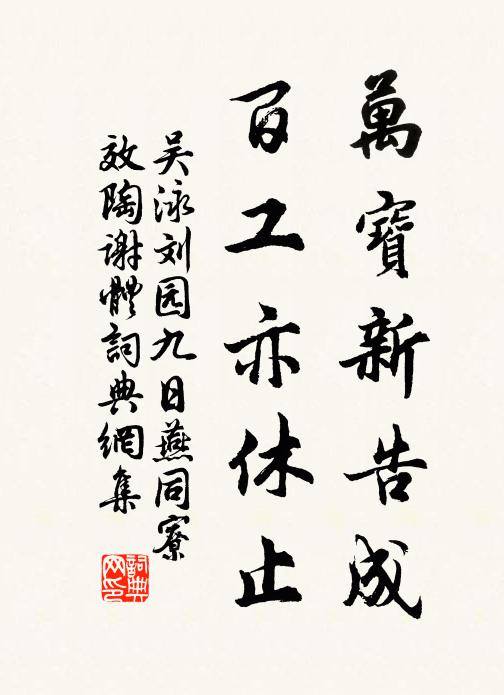 萬寶新告成
百工亦休止
吴泳刘园九日燕同寮
效陶谢體詞典網集
詞典网印